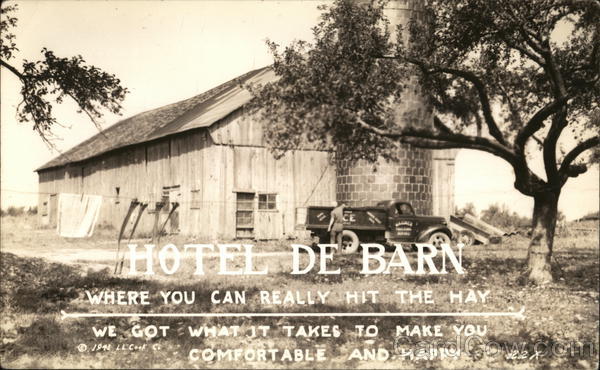 ICE
HOTEL DE BARN
WHERE YOU CAN REALLY HIT THE HAY
WE GOT WHAT IT TAKES TO MAKE YOU
© 1948 L.L. Cook Co
COMFORTABLE AND HAPPY
CardCow.com